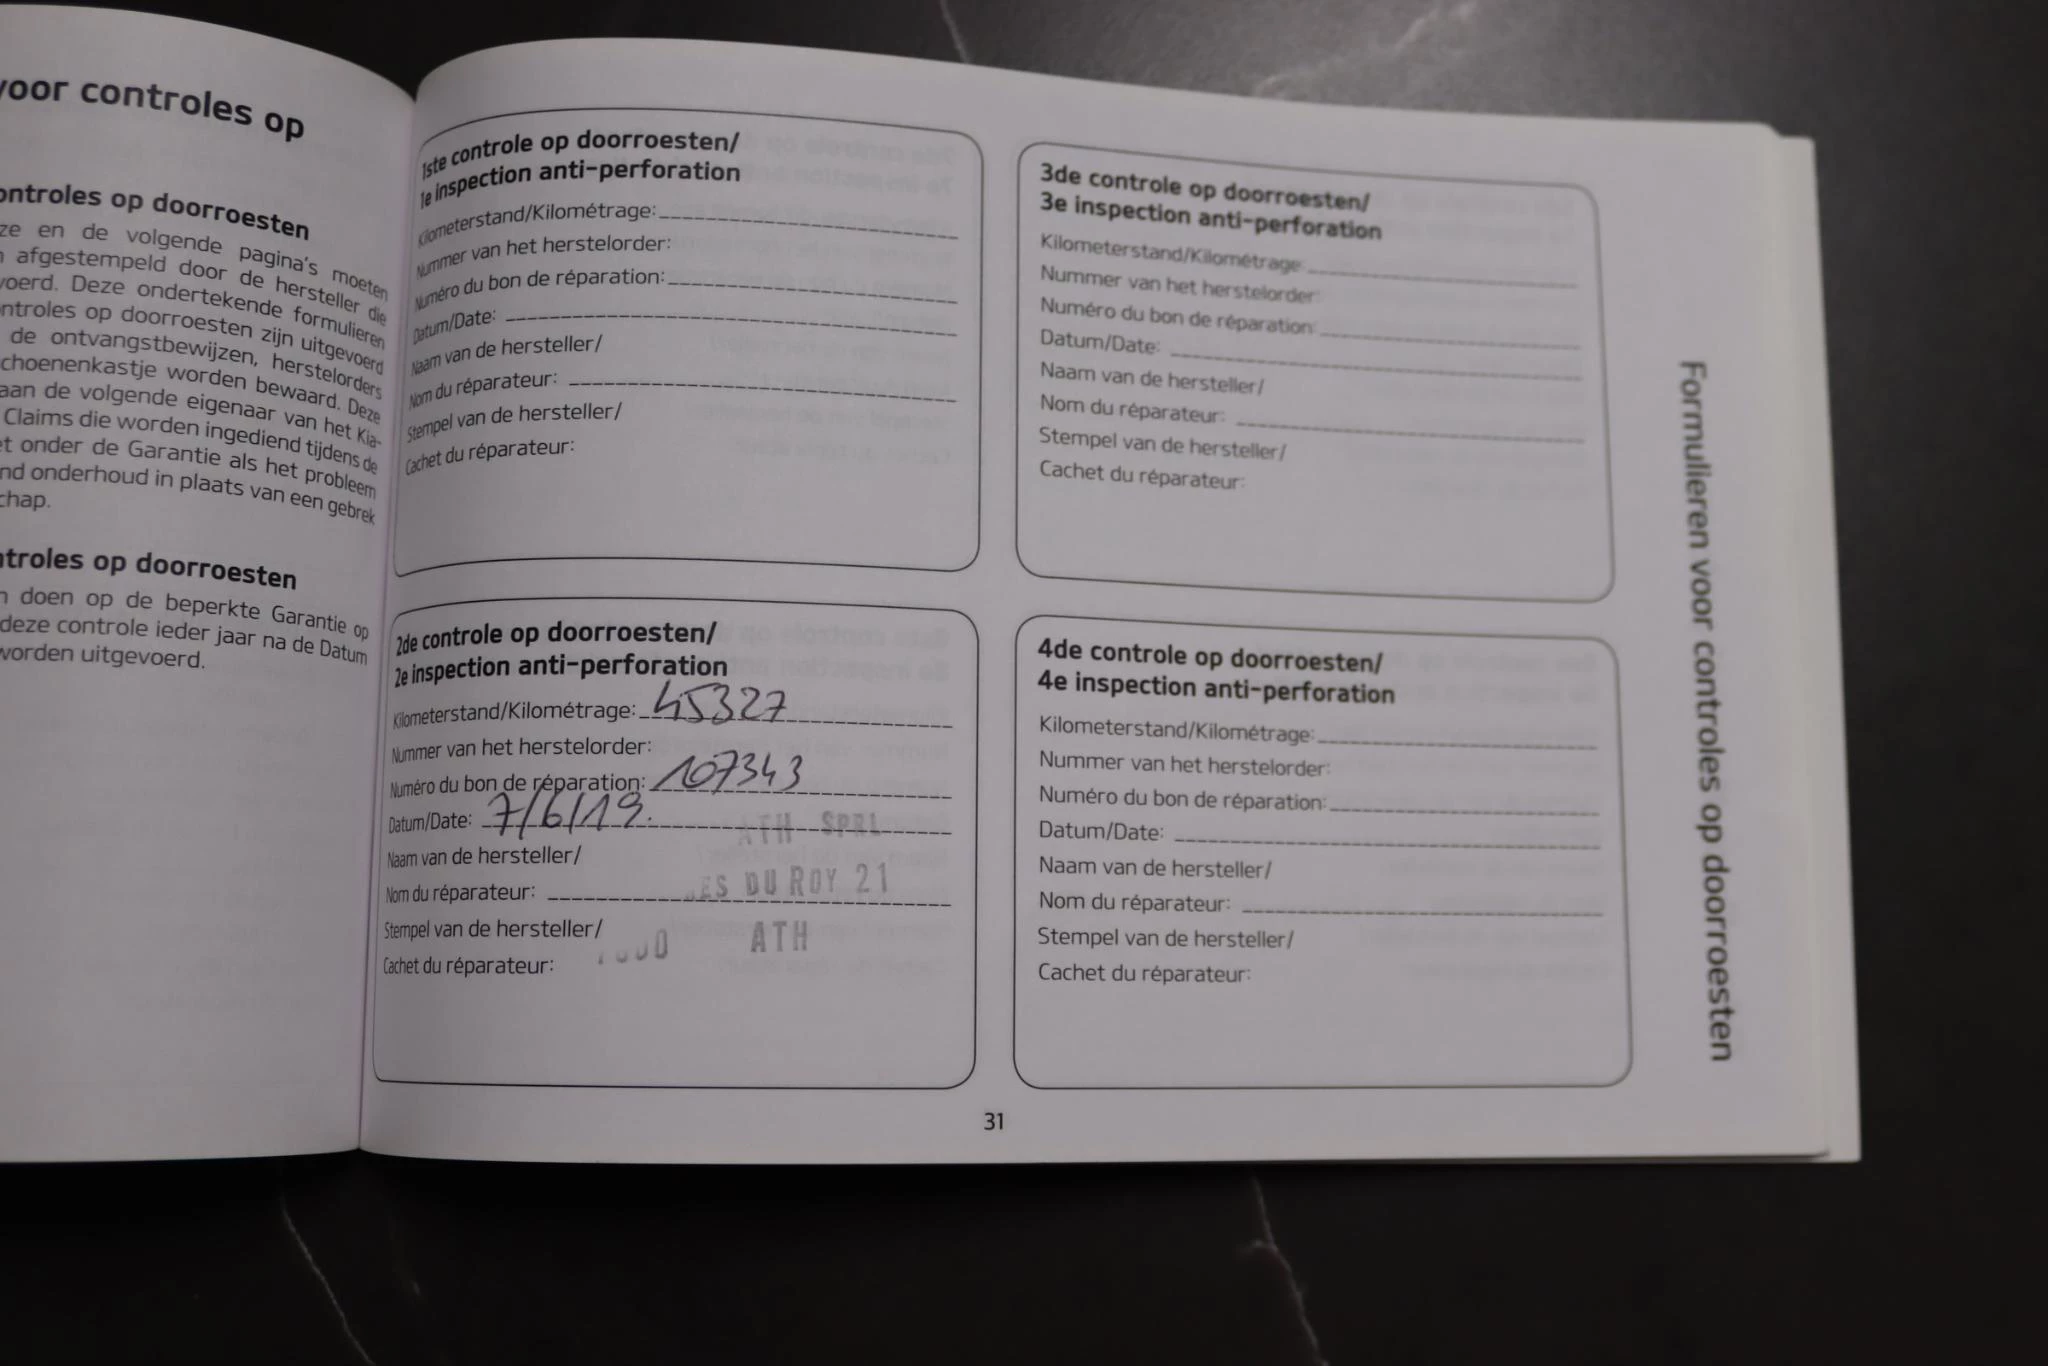 voor controles op
controles op doorroesten
ze en de volgende pagina's moeten
afgestempeld door de hersteller die
voerd. Deze ondertekende formulieren
ontroles op doorroesten zijn uitgevoerd
de ontvangstbewijzen, herstelorders
choenenkastje worden bewaard. Deze
aan de volgende eigenaar van het Kia-
Claims die worden ingediend tijdens de
et onder de Garantie als het probleem
nd onderhoud in plaats van een gebrek
chap.
ntroles op doorroesten
n doen op de beperkte Garantie op
deze controle ieder jaar na de Datum
worden uitgevoerd.
1ste controle op doorroesten/
1e inspection anti-perforation
Kilometerstand/Kilométrage:
Nummer van het herstelorder:
Numéro du bon de réparation:
Datum/Date:
Naam van de hersteller/
Nom du réparateur:
Stempel van de hersteller/
Cachet du réparateur:
2de controle op doorroesten/
2e inspection anti-perforation
Kilometerstand/Kilométrage: 45327
Nummer van het herstelorder:
Numéro du bon de réparation: 107343
Datum/Date: 7/6/19.
ATH SPRL
Naam van de hersteller/
Nom du réparateur:
ES DU ROY 21
Stempel van de hersteller/
ATH
Cachet du réparateur:
3de controle op doorroesten/
3e inspection anti-perforation
Kilometerstand/Kilométrage:
Nummer van het herstelorder:
Numéro du bon de réparation:
Datum/Date:
Naam van de hersteller/
Nom du réparateur:
Stempel van de hersteller/
Cachet du réparateur:
4de controle op doorroesten/
4e inspection anti-perforation
Kilometerstand/Kilométrage:
Nummer van het herstelorder:
Numéro du bon de réparation:
Datum/Date:
Naam van de hersteller/
Nom du réparateur:
Stempel van de hersteller/
Cachet du réparateur:
Formulieren voor controles op doorroesten
31